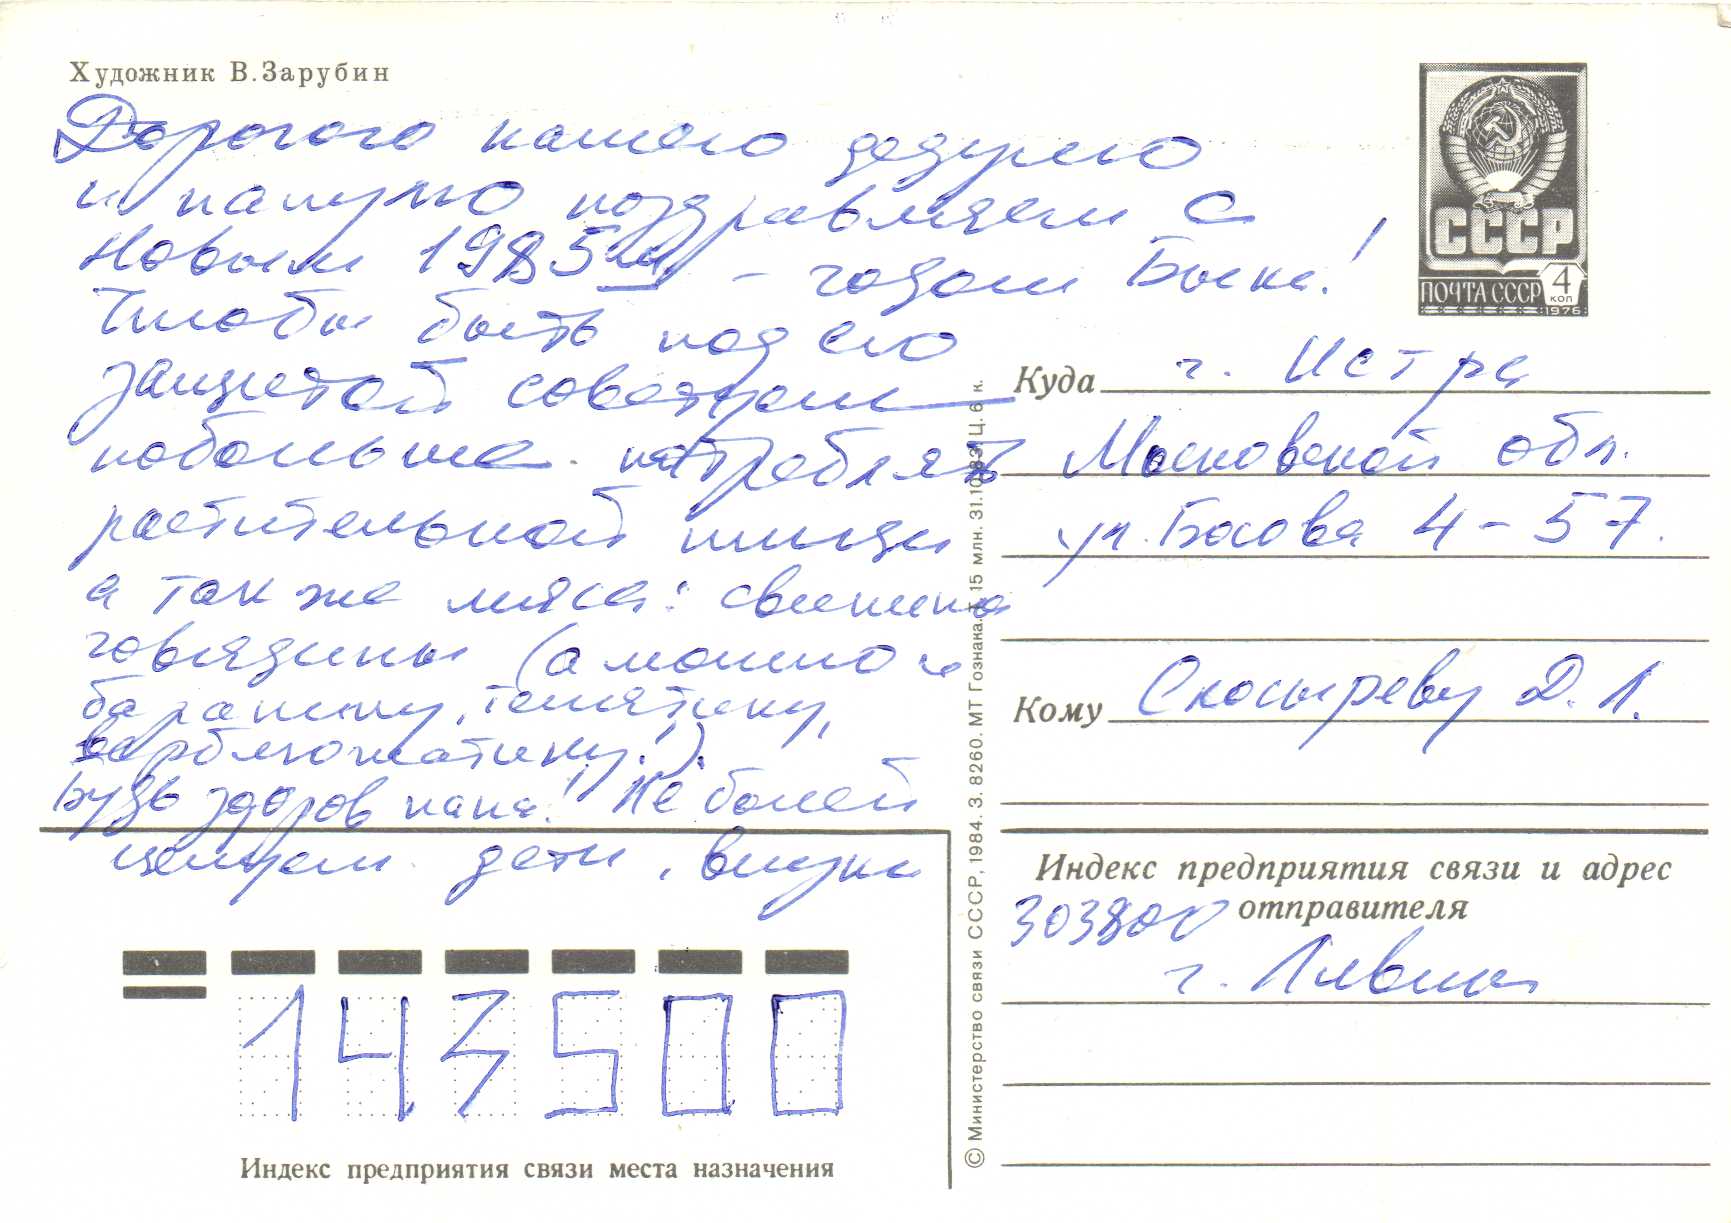 Художник В.Зарубин
Дорогого нашего дедулю
и папулю поздравляем с
Новым 1985ым - годом Быка!
Чтобы быть под его
защитой советуем
побольше потреблять
растительной пищи
а так же мяса: свинина
говядины (а можно и
баранину, телятину,
верблюжатину!).
Будь здоров папа! Не болей
целуем дети, внуки
СССР
ПОЧТА СССР 4 КОП
1976
Куда г. Истра
Московской обл.
ул. Босова 4-57.
Кому Скосыреву Д.Л.
Индекс предприятия связи и адрес
отправителя
303800
г. Ливны
143500
Индекс предприятия связи места назначения
© Министерство связи СССР, 1984. З. 8260. МТ Гознака. Т. 15 млн. 31.10.83. Ц. 6 к.